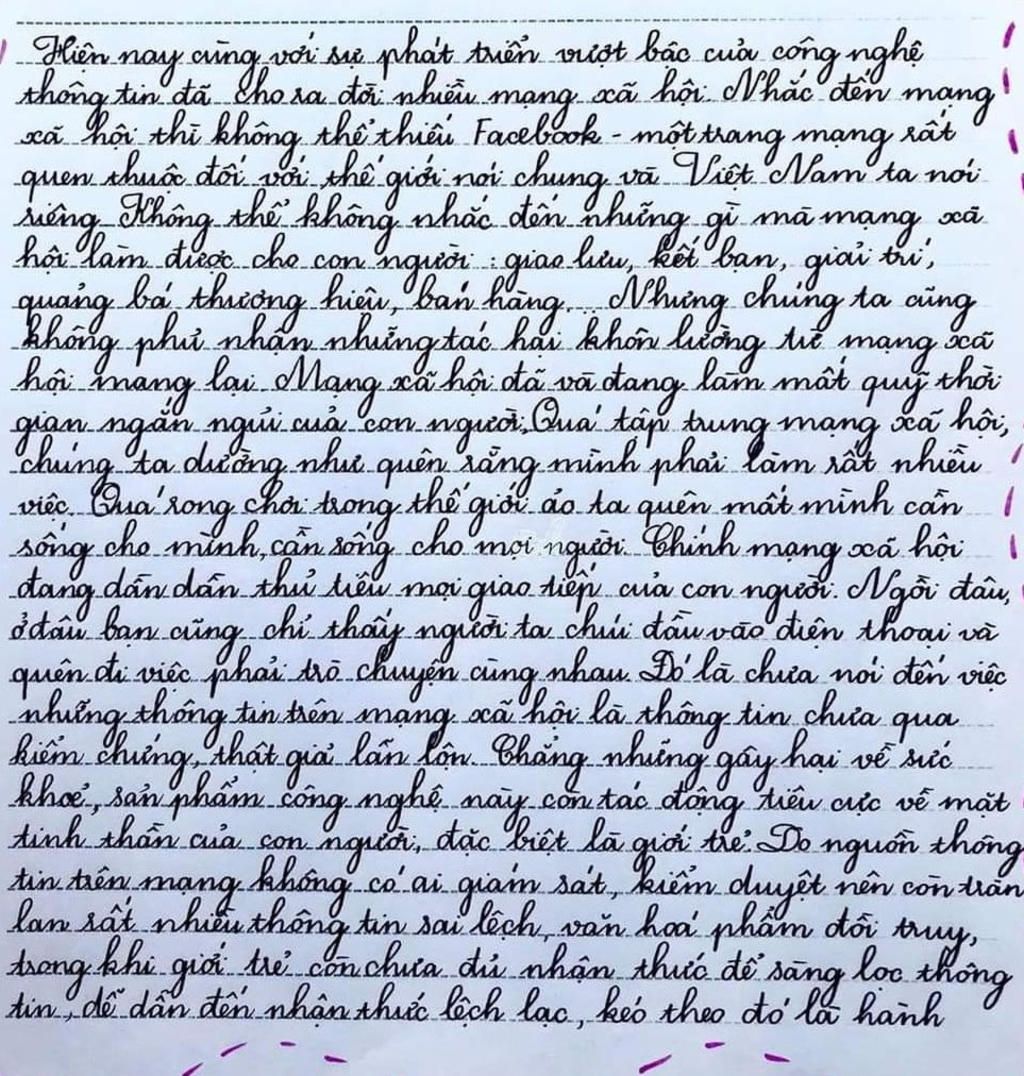 Hiện nay cùng với sự phát triển vượt bậc của công nghệ
thông tin đã cho ra đời nhiều mạng xã hội. Nhắc đến mạng
xã hội thì không thể thiếu Facebook - một trang mạng rất
quen thuộc đối với thế giới nói chung và Việt Nam ta nói
riêng. Không thể không nhắc đến những gì mà mạng xã
hội làm được cho con người: giao lưu, kết bạn, giải trí,
quảng bá thương hiệu, bán hàng... Nhưng chúng ta cũng
không phủ nhận những tác hại khôn lường từ mạng xã
hội mang lại. Mạng xã hội đã và đang làm mất quỹ thời
gian ngắn ngủi của con người. Quá tập trung mạng xã hội,
chúng ta dường như quên rằng mình phải làm rất nhiều
việc. Quá rong chơi trong thế giới ảo ta quên mất mình cần
sống cho mình, cần sống cho mọi người. Chính mạng xã hội
đang dần dần thủ tiêu mọi giao tiếp của con người. Ngồi đâu,
ở đâu bạn cũng chỉ thấy người ta chúi đầu vào điện thoại và
quên đi việc phải trò chuyện cùng nhau. Đó là chưa nói đến việc
những thông tin trên mạng xã hội là thông tin chưa qua
kiểm chứng, thật giả lẫn lộn. Chẳng những gây hại về sức
khoẻ, sản phẩm công nghệ này còn tác động tiêu cực về mặt
tinh thần của con người, đặc biệt là giới trẻ. Do nguồn thông
tin trên mạng không có ai giám sát, kiểm duyệt nên còn tràn
lan rất nhiều thông tin sai lệch, văn hoá phẩm đồi truỵ,
trong khi giới trẻ còn chưa đủ nhận thức để sàng lọc thông
tin, dễ dẫn đến nhận thức lệch lạc, kéo theo đó là hành